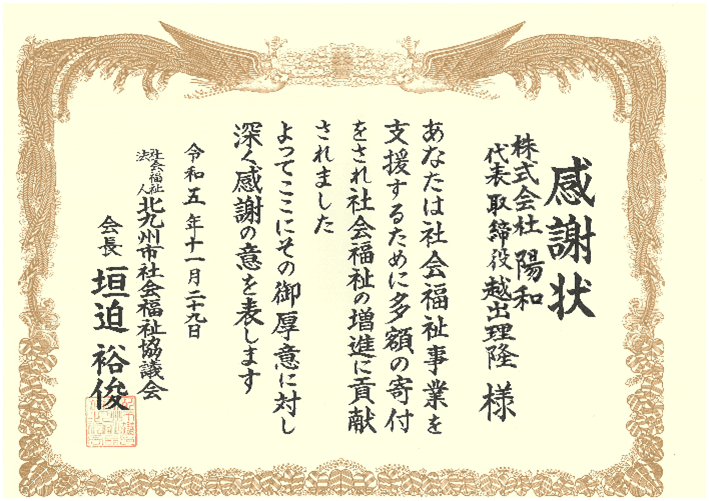 感謝状
株式会社 陽和
代表取締役 越出理隆 様
あなたは社会福祉事業を
支援するために多額の寄付
をされ社会福祉の増進に貢献
されました
よってここにその御厚意に対し
深く感謝の意を表します
令和五年十一月二十九日
社会福祉法人 北九州市社会福祉協議会
会長 垣迫 裕俊